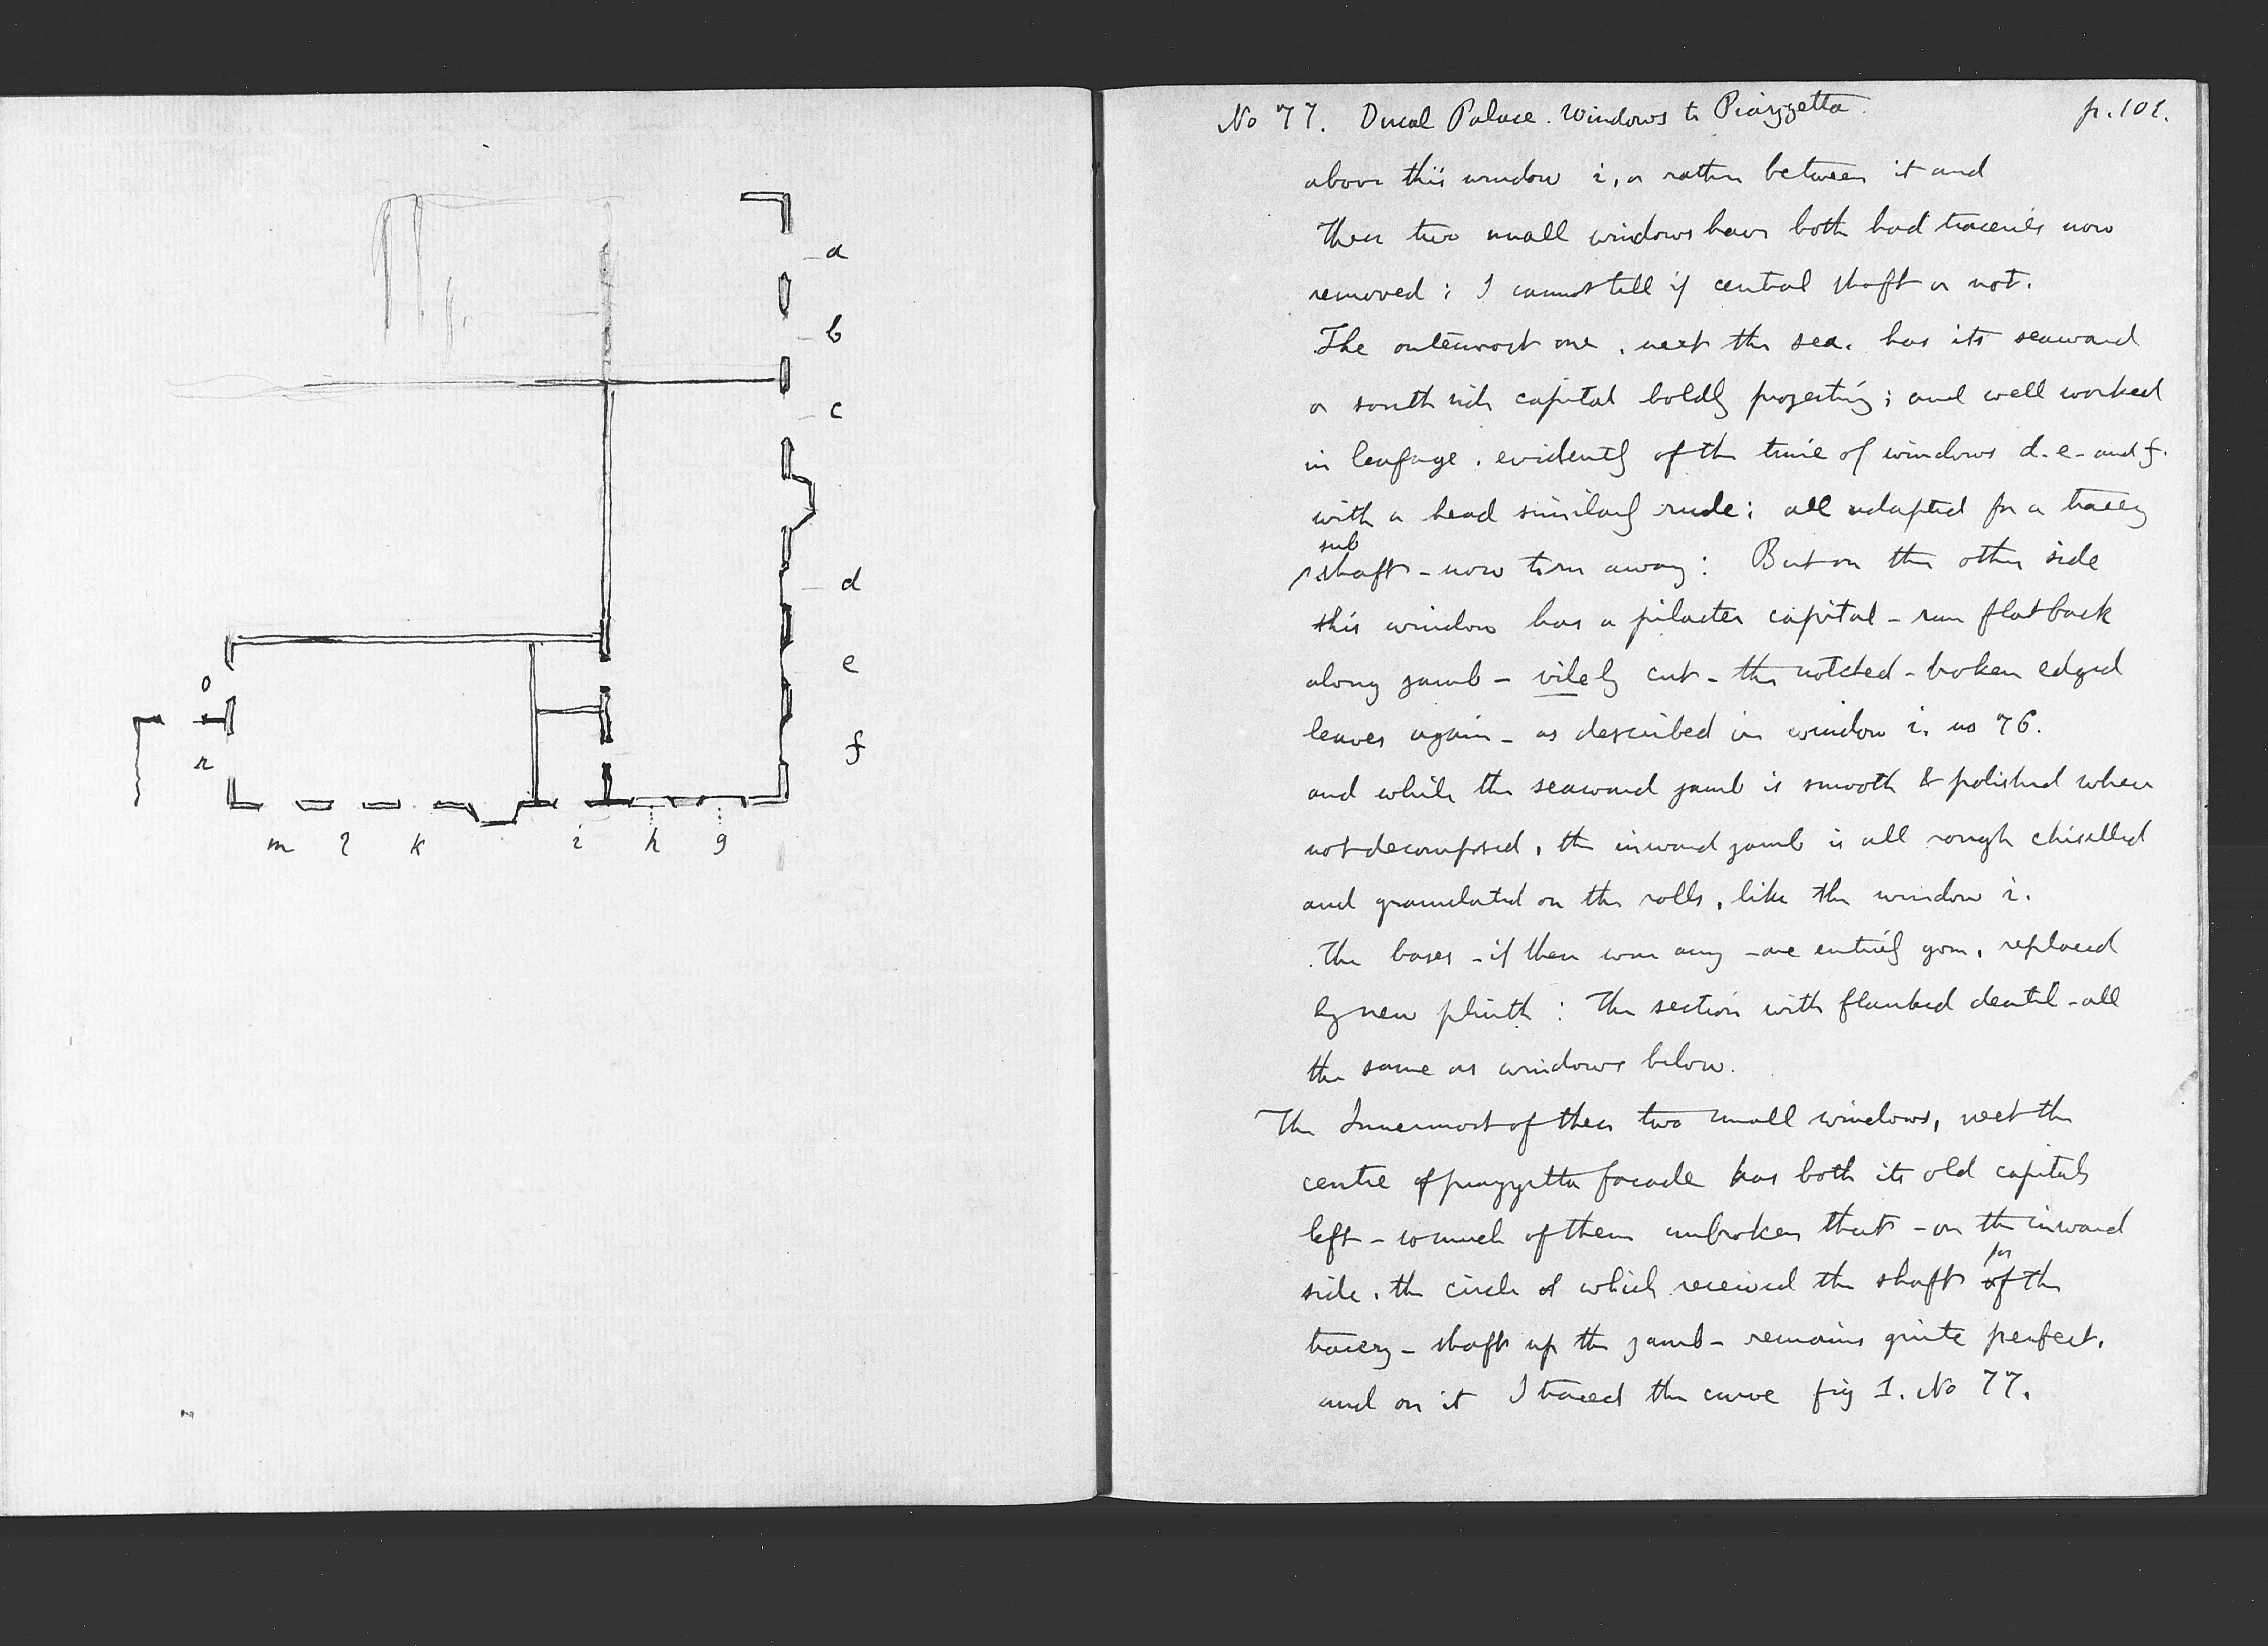 a
b
c
d
e
f
o
n
m l k i h g
No 77. Ducal Palace. Windows to Piazzetta. p. 101.
above this window i, or rather between it and
These two small windows have both had traceries now
removed: I cannot tell if central shaft or not.
The outermost one, next the sea, has its seaward
or south side capital boldly projecting; and well worked
in leafage. evidently of the time of windows d. e. and f.
with a head similarly rude; all adapted for a tracery
sub
shaft - now torn away: But on the other side
this window has a pilaster capital - run flat back
along jamb - vilely cut - the notched - broken edged
leaves again - as described in window i. no 76.
and while the seaward jamb is smooth & polished when
not decomposed, the inward jamb is all rough chiselled
and granulated on the rolls, like the window i.
The bases - if there were any - are entirely gone, replaced
by new plinth: The section with flanked dentil - all
the same as windows below.
The Innermost of these two small windows, next the
centre of piazzetta facade has both its old capitals
left - so much of them unbroken that - on the inward
for
side, the circle of which received the shaft of the
tracery - shaft up the jamb - remains quite perfect,
and on it I traced the curve fig 1. No 77.